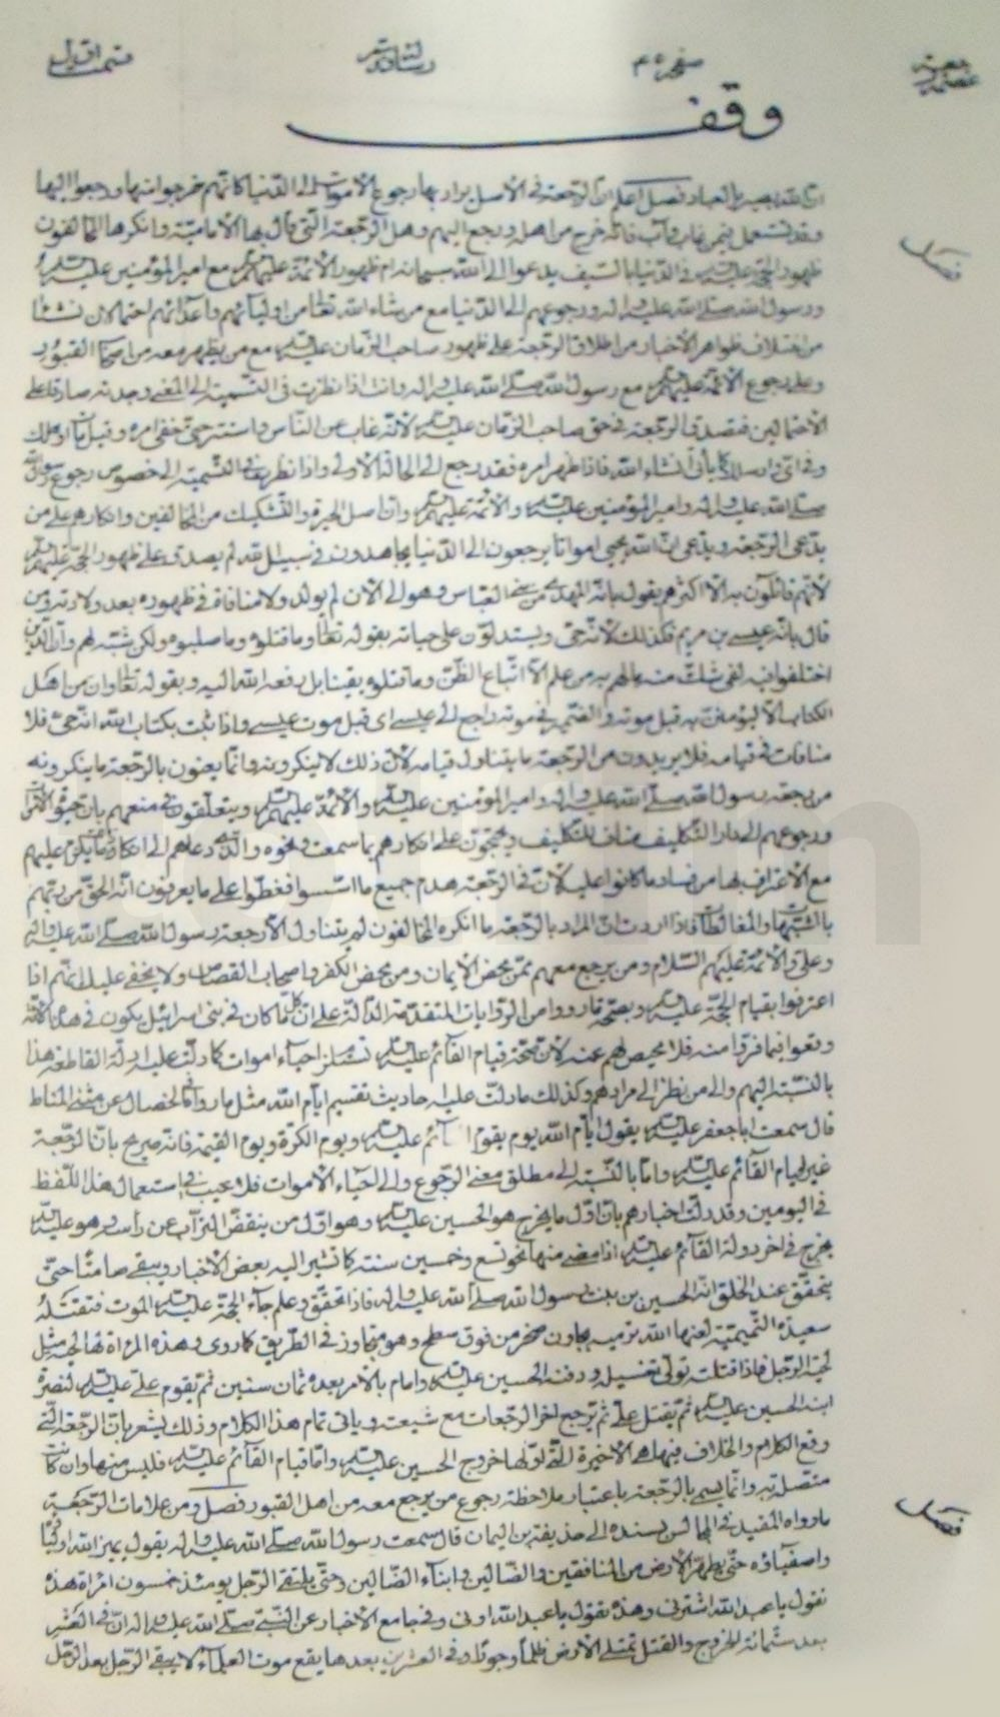 صفحه ٤٠ قسمت اول
وقف
ان الله بصير بالعباد فصل اعلم ان الرجعة في الاصل يراد بها رجوع الاموات الى الدنيا كانهم خرجوا منها ورجعوا اليها
وقد تستعمل فيمن غاب وآب فانه خرج من اهله ورجع اليهم وهل الرجعة التي قال بها الامامية وانكرها المخالفون
ظهور الحجة عليه السلم في الدنيا بالسيف يدعوا الى الله سبحانه ام ظهور الائمة عليهم السلم مع امير المؤمنين عليه السلم
ورسول الله صلى الله عليه واله ورجوعهم الى الدنيا مع من شاء الله تعالى من اوليائهم واعدائهم احتمالان نشئا
من اختلاف ظواهر الاخبار من اطلاق الرجعة على ظهور صاحب الزمان عليه السلم مع من يظهر معه من اصحاب القبور
وعلى رجوع الائمة عليهم السلم مع رسول الله صلى الله عليه واله وانت اذا نظرت في التسمية الى المعنى وجدته صادقا على
الاحتمالين فتصدق الرجعة في حق صاحب الزمان عليه السلم لانه غاب عن الناس واستتر حتى خفى امره وقيل مات او هلك
وفي اي واد سلك كما يأتي انشاء الله فاذا ظهر امره فقد رجع الى الحالة الاولى واذا نظرت في التسمية الى خصوص رجوع رسول الله
صلى الله عليه واله وامير المؤمنين عليه السلم والائمة عليهم السلم وان اصل الحيرة والتشكيك من المخالفين وانكارهم على من
يدعى الرجعة ويدعى ان الله يحيى امواتا يرجعون الى الدنيا يجاهدون في سبيل الله لم يصدق على ظهور الحجة عليه السلم
لانهم قائلون به الا اكثرهم يقول بانه المهدي من بني العباس وهو الى الان لم يولد ولا منافاة في ظهوره بعد ولادته ومن
قال بانه عيسى بن مريم فكذلك لانه حي ويستدلون على حياته بقوله تعالى وما قتلوه وما صلبوه ولكن شبه لهم وان الذين
اختلفوا فيه لفي شك منه ما لهم به من علم الا اتباع الظن وما قتلوه يقينا بل رفعه الله اليه وبقوله تعالى وان من اهل
الكتاب الا ليؤمنن به قبل موته والضمير في موته راجع الى عيسى اي قبل موت عيسى واذا ثبت بكتاب الله انه حي فلا
منافات في قيامه فلا يريدون من الرجعة ما يتناول قيامه لان ذلك لا ينكرونه وانما يعنون بالرجعة ما ينكرونه
من رجعة رسول الله صلى الله عليه واله وامير المؤمنين عليه السلم والائمة عليهم السلم ويتعلقون في منعهم بان
ورجوعهم الى دار التكليف مناف للتكليف ويحتجون على انكارهم بما سمعت ونحوه والذي دعاهم الى انكار ما يلزم عليهم
مع الاعتراف بها من فساد ما كانوا عليه لان في الرجعة هدم جميع ما اسسوا فغطوا على ما يعرفون انه الحق من ربهم
بالشبهات والمغالطات فاذا اردت ان المراد بالرجعة ما انكره المخالفون لم يتناول الا رجعة رسول الله صلى الله عليه واله
وعلي والائمة عليهم السلام ومن يرجع معهم ممن محض الايمان ومن محض الكفر واصحاب القصاص ولا يخفى عليك انهم اذا
اعترفوا بقيام الحجة عليه السلم وبصحة ما رووا من الروايات المتقدمة الدالة على ان كل ما كان في بني اسرائيل يكون في هذه الامة
وقعوا فيما فروا منه فلا محيص لهم عنه لان صحة قيام القائم عليه السلم تستلزم احياء اموات كما دلت عليه ادلة القاطعة هذا
بالنسبة اليهم والى من نظر الى مرادهم وكذلك ما دلت عليه احاديث تقسيم ايام الله مثل ما رواه في الخصال عن مثنى الحناط
قال سمعت ابا جعفر عليه السلم يقول ايام الله يوم يقوم القائم عليه السلم ويوم الكرة ويوم القيمة فانه صريح بان الرجعة
غير قيام القائم عليه السلم واما بالنسبة الى مطلق معنى الرجوع والى احياء الاموات فلا عيب في استعمال هذا اللفظ
في اليومين وقد دلت اخبارهم بان اول ما يخرج هو الحسين عليه السلم وهو اول من ينفض التراب عن راسه وهو عليه السلم
يخرج في اخر دولة القائم عليه السلم اذا مضى منها نحو تسع وخمسين سنة كما تشير اليه بعض الاخبار ويبقى صامتا حتى
يتحقق عند الخلق انه الحسين بن بنت رسول الله صلى الله عليه واله فاذا تحقق وعلم جاء الحجة عليه السلم الموت فتقتله
سعيدة التميمية لعنها الله ترميه بجاون صخر من فوق سطح وهو متجاوز في الطريق كما روى وهذه المرأة لها لحية مثل
لحية الرجل فاذا قتلته تولى تغسيله ودفنه الحسين عليه السلم وقام بالامر بعده ثمان سنين ثم يقوم علي عليه السلم لنصرة
ابنه الحسين عليه السلم ثم يقتل علي ثم يرجع اخر الرجعات مع شيعته وياتي تمام هذا الكلام وذلك يشعر بان الرجعة التي
وقع الكلام والخلاف فيها هي الاخيرة التي اولها خروج الحسين عليه السلم واما قيام القائم عليه السلم فليس منها وان كانت
متصلة به وانما يسمى بالرجعة باعتبار ملاحظة رجوع من يرجع معه من اهل القبور فصل ومن علامات الرجعة
ما رواه المفيد في المجالس بسنده الى حذيفة بن اليمان قال سمعت رسول الله صلى الله عليه واله يقول يميز الله اوليائه
واصفيائه حتى يطهر الارض من المنافقين والضالين وابناء الضالين وحتى يلتقى الرجل يومئذ خمسون امرأة هذه
تقول يا عبد الله اشترني وهذه تقول يا عبد الله اوني وفي جامع الاخبار عن النبي صلى الله عليه واله ان في العشر
بعد ستمائة الخروج والقتل تمتلى الارض ظلما وجورا وفي العشرين بعدها يقع موت العلماء لا يبقى الرجل بعد الرجل
فصل
فصل